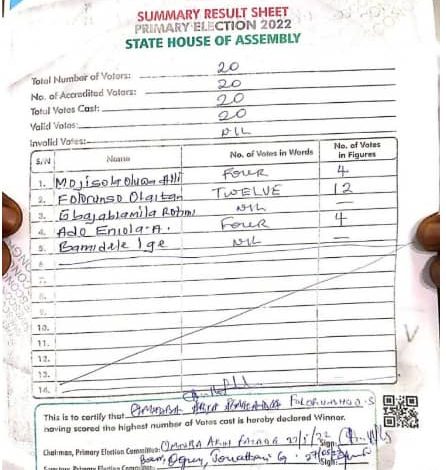 SUMMARY RESULT SHEET
PRIMARY ELECTION 2022
STATE HOUSE OF ASSEMBLY
Total Number of Voters: 20
No. of Accredited Voters: 20
Total Votes Cast: 20
Valid Votes: 20
Invalid Votes: NIL
S/N Name No. of Votes in Words No. of Votes in Figures
1. Mojisola Oluwa Alli FOUR 4
2. Folorunso Olaitan TWELVE 12
3. Gbajabiamila Rotimi NIL —
4. Ado Eniola A. FOUR 4
5. Bamidele Ige NIL —
6.
7.
8.
9.
10.
11.
12.
13.
14.
This is to certify that
having scored the highest number of Votes cast is hereby declared Winner.
Chairman, Primary Election Committee: Sign:
Secretary, Primary Election Committee